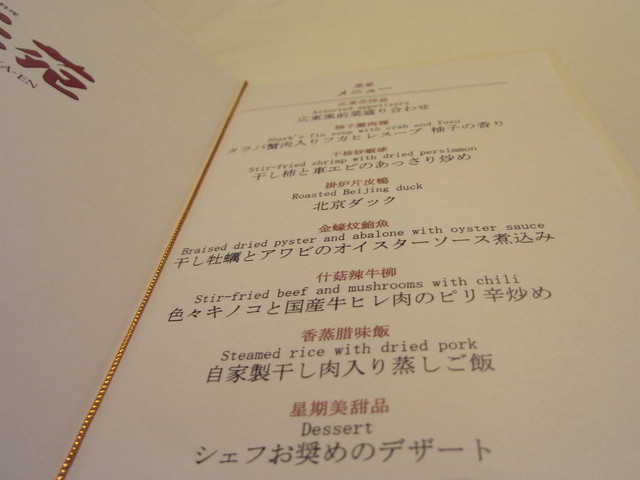 苑
A-EN
メニュー
Assorted appetizers
広東風前菜盛り合わせ
柚子蟹肉翅
Shark's fin soup with crab and Yuzu
タラバ蟹肉入りフカヒレスープ 柚子の香り
干柿炒蝦球
Stir-fried shrimp with dried persimmon
干し柿と車エビのあっさり炒め
掛炉片皮鴨
Roasted Beijing duck
北京ダック
金蠔炆鮑魚
Braised dried pyster and abalone with oyster sauce
干し牡蠣とアワビのオイスターソース煮込み
什菇辣牛柳
Stir-fried beef and mushrooms with chili
色々キノコと国産牛ヒレ肉のピリ辛炒め
香蒸腊味飯
Steamed rice with dried pork
自家製干し肉入り蒸しご飯
星期美甜品
Dessert
シェフお奨めのデザート